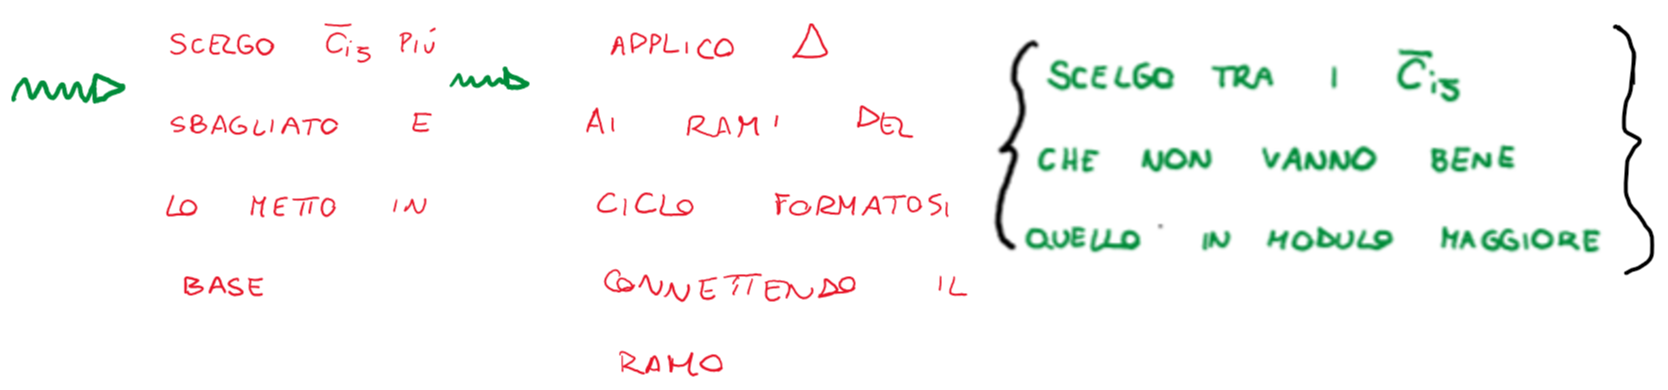 SCELGO C̅ij PIÚ
SBAGLIATO E
LO METTO IN
BASE
APPLICO Δ
AI RAMI DEL
CICLO FORMATOSI
CONNETTENDO IL
RAMO
SCELGO TRA I C̅ij
CHE NON VANNO BENE
QUELLO IN MODULO MAGGIORE